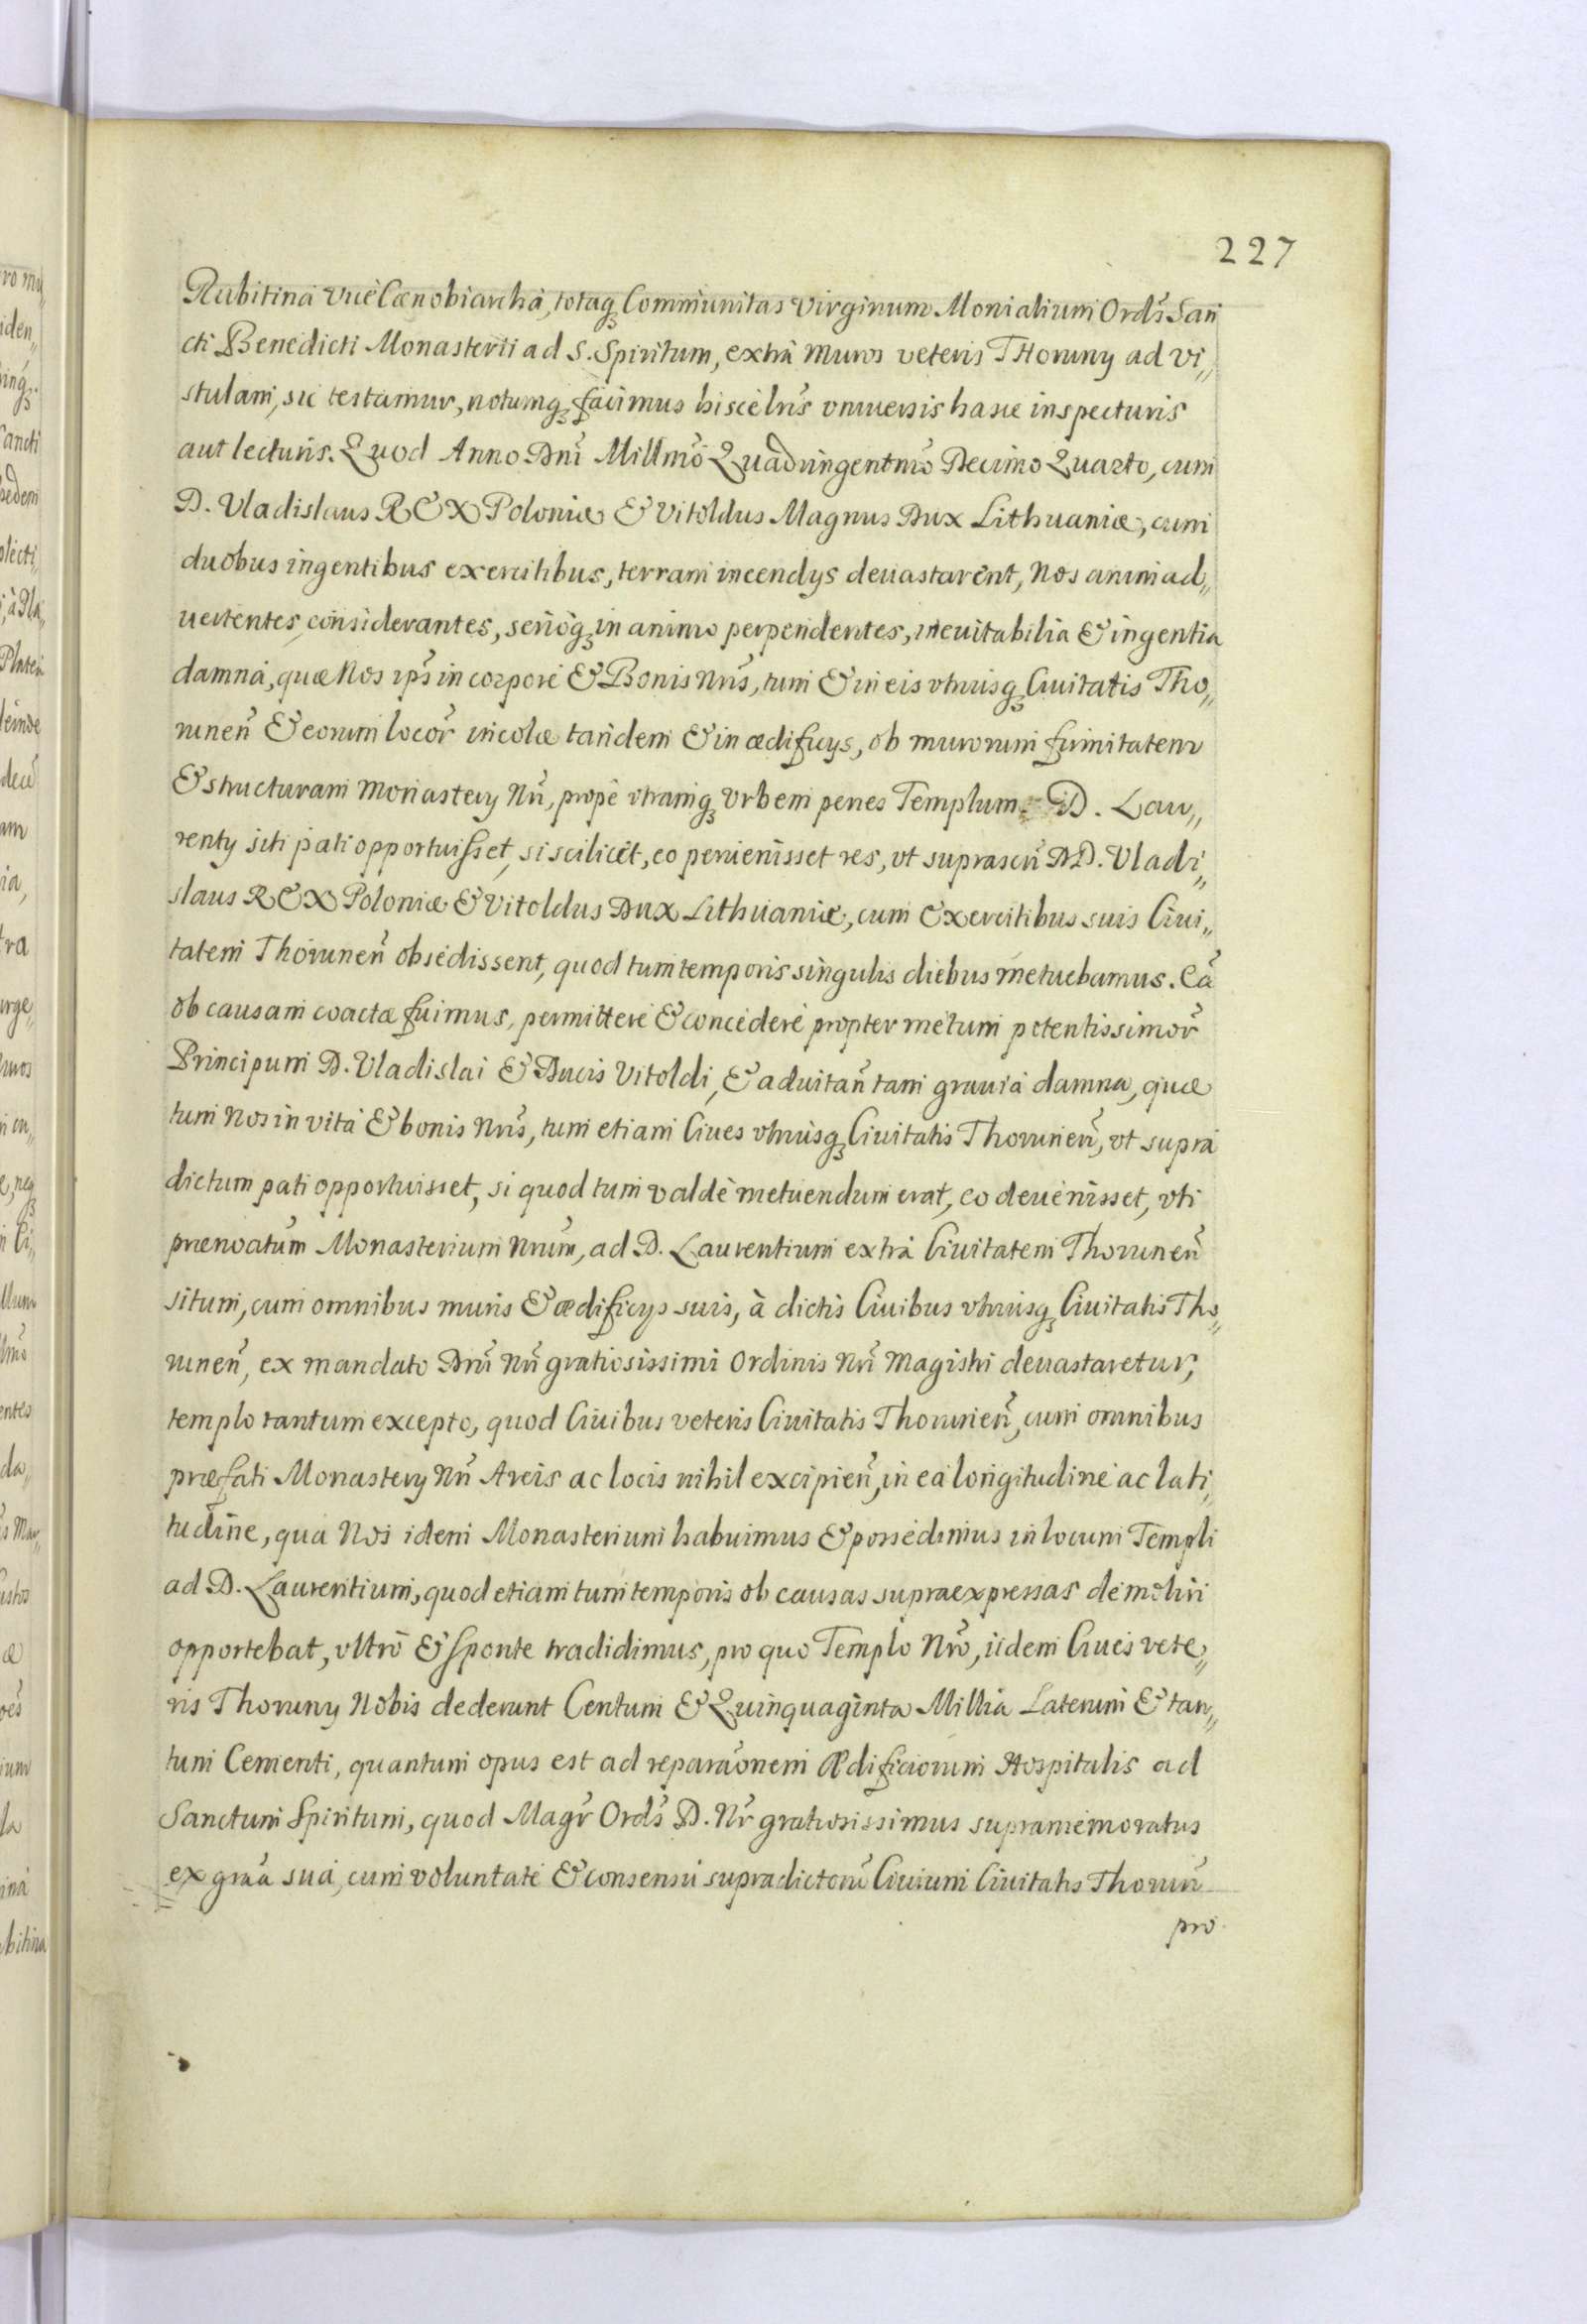 227
Rubitina Vicè Cænobiarcha, totaq́ʒ Communitas Virginum Monialium Ordĩs San
cti Benedicti Monasterii ad S. Spiritum, extrà muros veteris THoruny ad Vi„
stulam, sic testamur, notumqʒ facimus hisce lr̃is vniuersis hasce inspecturis
aut lecturis. Quod Anno Dnĩ Millmõ Quadringentmõ Decimo Quarto, cum
D. Vladislaus REX Poloniæ & Vitoldus Magnus Dux Lithuaniæ, cum
duobus ingentibus exercitibus, terram incendys deuastarent, Nos animad„
uertentes, considerantes, serioqʒ in animo perpendentes, ineuitabilia & ingentia
damna, quæ Nos ips̃ in corpore & Bonis Nris̃, tum & in eis vtriusqʒ Ciuitatis Tho„
runen̄ & eorum locor̄ incolæ tandem & in ædificys, ob murorum firmitatem
& structuram Monastery Nrĩ, propè vtramqʒ Vrbem penes Templum D. Lau„
renty siti pati opportuisset, si scilicet, eo peruenisset res, vt suprascrĩ DD. Vladi„
slaus REX Poloniæ & Vitoldus Dux Lithuaniæ, cum Exercitibus suis Ciui„
tatem Thorunen̄ obsedissent, quod tum temporis singulis diebus metuebamus. Eã
ob causam coactæ fuimus, permittere & concedere propter metum potentissimor̄
Principum D. Vladislai & Ducis Vitoldi, & ad vitan̄ tam grauia damna, quæ
tum Nos in vita & bonis Nris̃, tum etiam Ciues vtriusqʒ Ciuitatis Thorunen̄, vt supra
dictum pati opportuisset, si quod tum valdè metuendum erat, eo deuenisset, vti
prænoatum̃ Monasterium Nrum̃, ad D. Laurentium extrà Ciuitatem Thorunen̄
situm, cum omnibus muris & ædificys suis, à dictis Ciuibus vtriusqʒ Ciuitatis Tho„
runen̄, ex mandato Dnĩ Nrĩ gratiosissimi Ordinis Nrĩ Magistri deuastaretur,
templo tantum excepto, quod Ciuibus veteris Ciuitatis Thorunen̄, cum omnibus
præfati Monastery Nrĩ Areis ac locis nihil excipien̄, in ea longitudine ac lati„
tudine, qua Nos idem Monasterium habuimus & possedimus in locum Templi
ad D. Laurentium, quod etiam tum temporis ob causas supraexpressas demoliri
opportebat, vltrò & sponte tradidimus, pro quo Templo Nrõ, iidem Ciues vete„
ris Thoruny Nobis dederunt Centum & Quinquaginta Millia Laterum & tan„
tum Cementi, quantum opus est ad reparaõnem Ædificiorum Hospitalis ad
Sanctum Spiritum, quod Magr̃ Ordĩs D. Nr̃ gratiosissimus supramemoratus
ex grãa sua, cum voluntate & consensu supradictorũ Ciuium Ciuitatis Thorun̄
pro